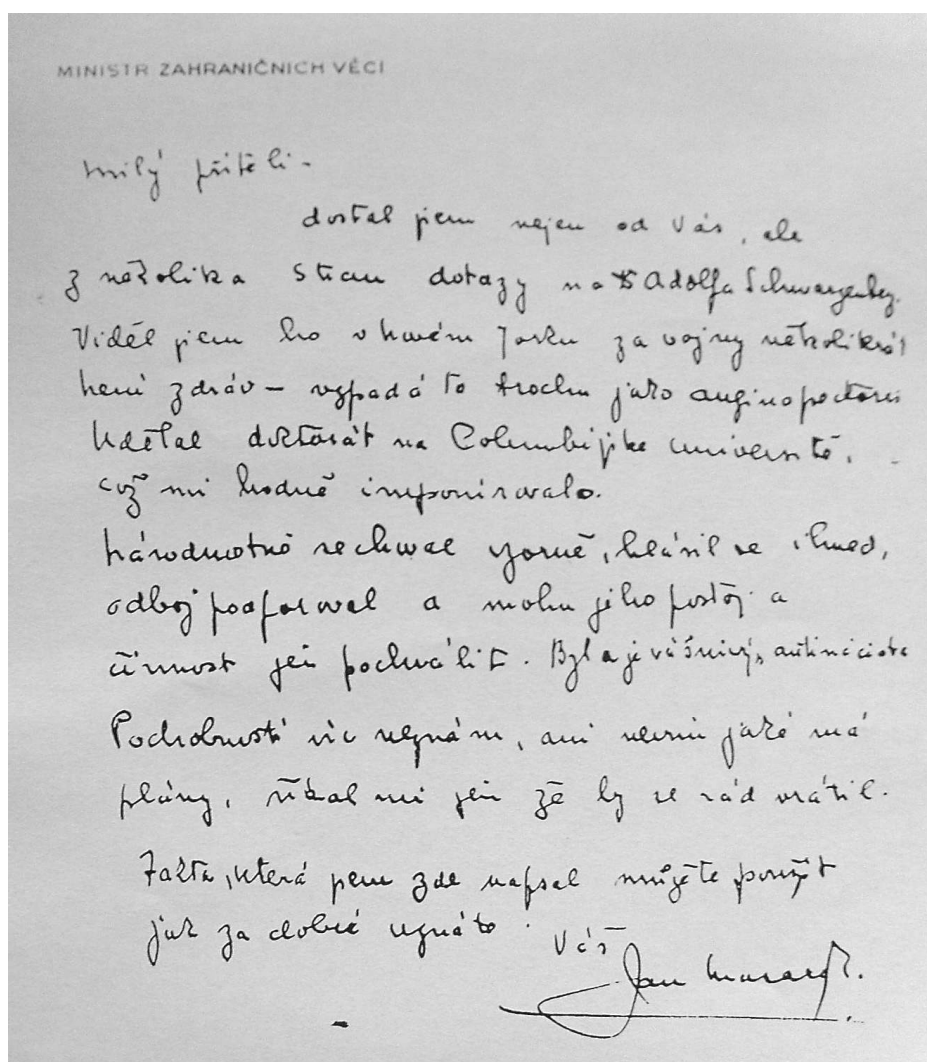 MINISTR ZAHRANIČNÍCH VĚCÍ
Milý příteli -
dostal jsem nejen od Vás, ale
z několika stran dotazy na Dr Adolfa Schwarzenberg.
Viděl jsem ho v Novém Jorku za vojny několikrát
Není zdráv – vypadá to trochu jako angina pectoris
Udělal doktorát na Columbijské universitě,
což mi hodně imponirovalo.
Národnostně se choval vzorně, hlásil se ihned,
odboj podporoval a mohu jeho postoj a
činnost jen pochválit. Byl a je vášnivý antinacista
Podrobností víc neznám, ani nevím jaké má
plány, říkal mi jen že by se rád vrátil.
Fakta, která jsem zde napsal můžete použít
jak za dobré uznáte.
Váš
Jan Masaryk.